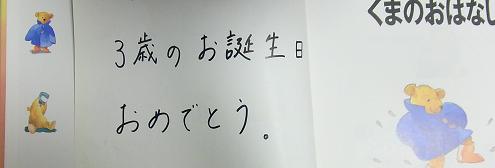 3歳のお誕生日
おめでとう。
くまのおはなし